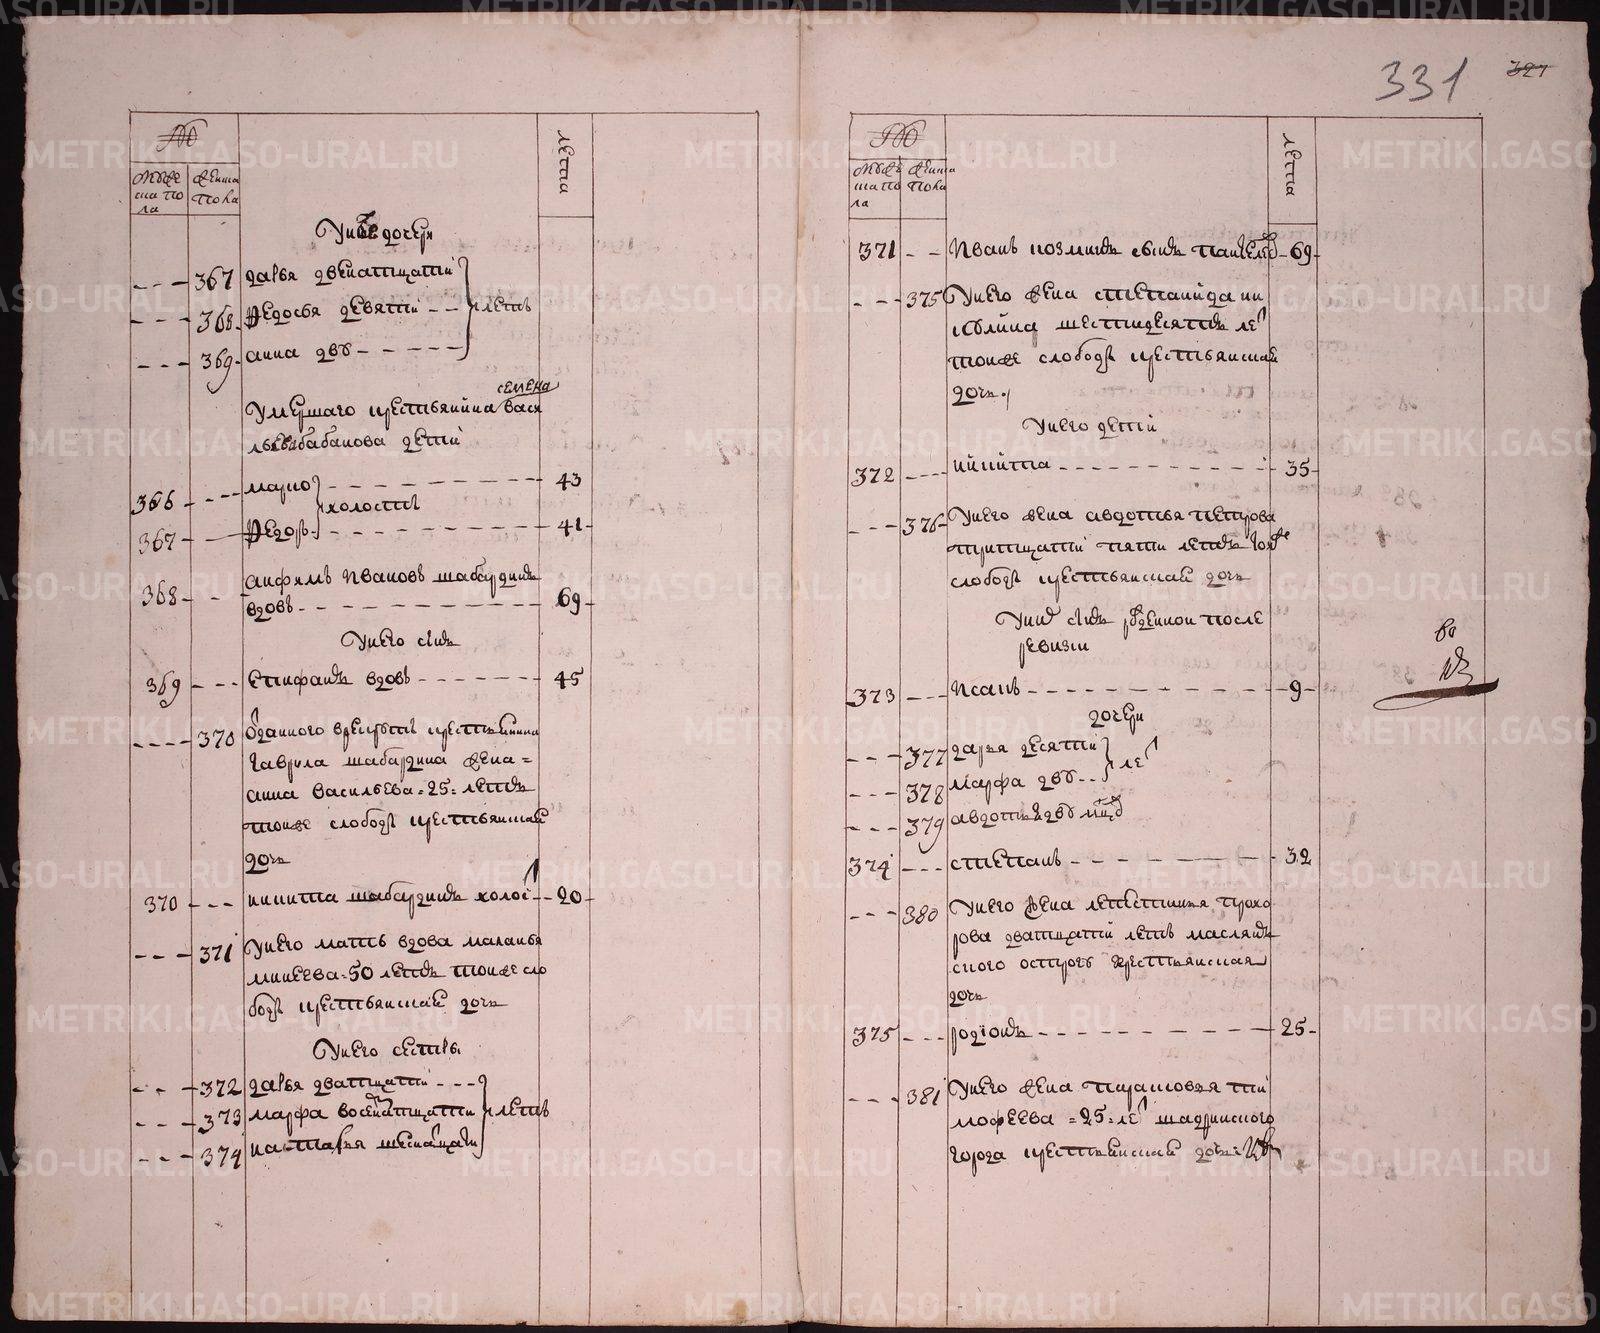 331
327
№
мужеска пола
женска пола
лета
У них дочери
367 дарья двенатцати
368 федосья девяти
летъ
369 анна дву
семена
Умершаго крестьянина васи
льева бабанова дети
366 марко 43
холосты
367 федоръ 41
368 анфимъ Ивановъ шабардинъ
вдовъ 69
У него сынъ
369 Епифанъ вдовъ 45
370 Отданного врекруты крестьянина
гаврила шабардина жена
анна Васильева 25 летъ
тоиже слободы крестьянская
дочь
370 никита шабардинъ холос 20
371 У него мать вдова маланья
минеева 50 летъ тоиже сло
боды крестьянская дочь
У него сестры
372 дарья дватцати
373 марфа восемнатцати
летъ
374 наталья шеснатцати
№
мужеска пола
женска пола
лета
371 Иванъ козминъ сынъ 69
375 У него жена степанида ни
шестидесятъ ле
тоиже слободы крестьянская
дочь
У него дети
372 никита 35
376 У него жена авдотья петрова
тритцати пяти летъ тояже
слободы крестьянская дочь
У них сынъ рожденной после
ревизии
373 Исакъ 9
дочери
377 дарья десяти
ле
378 марфа дву
379 авдотья дву мцовъ
374 степанъ 32
380 У него жена прохо
рова дватцати летъ маслянъ
ского острогу крестьянская
дочь
375 родионъ 25
381 У него жена парасковья ти
мофеева 25 ле шадринского
города крестьянская дочь
METRIKI.GASO-URAL.RU